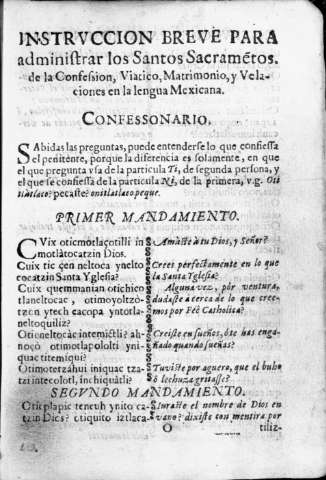 INSTRVCCION BREVE PARA
administrar los Santos Sacramẽtos.
de la Confession, Viatico, Matrimonio, y Vela-
ciones en la lengua Mexicana.
CONFESSONARIO.
SAbidas las preguntas, puede entenderse lo que confiessa
el penitente, porque la diferencia es solamente, en que
el que pregunta vsa de la particula Ti, de segunda persona, y
el que se confiessa de la particula Ni, de la primera, v.g. Oti
tlatlaco? pecaste? onitlatlacopeque.
PRIMER MANDAMIENTO.
CVix oticmotlaçotilli in
motlàtocatzin Dios.
Cuix tic cen neltoca ynelto
cocatzin Santa Yglesia?
Cuix quemmanian otichico
tlaneltocac, otimoyoltzò-
tzon ytech cacopa yntotla-
neltoquiliz?
Otioneltocàc intemictli? ah-
noçò otimotlapololti yni-
quac titemiqui?
Otimotetzàhui iniquac tza-
tzi intecolotl, in chiquàtli?
Amaste à tu Dios, y Señor?
Crees perfectamente en lo que
la Santa Yglesia?
Alguna vez, por ventura,
dudaste à cerca de lo que cree-
mos por Feè Catholica?
Creiste en sueños, ò te has enga-
ñado quando sueñas?
Tuviste por aguero, que el buho
ò lechuza gritasse?
SEGVNDO MANDAMIENTO.
Otic tlapic teneuh ynito ca-
tzin Dios? otiquito iztlaca-
Iuraste el nombre de Dios en
vano? dixiste con mentira por
O
tiliz-